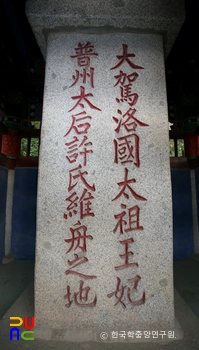 大駕洛國太祖王妃
普州太后許氏維舟之地
© 한국학중앙연구원